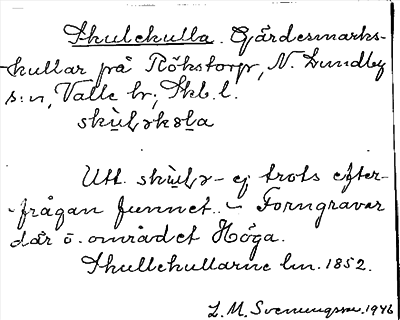 Skulekulla. Gärdesmarks-
kullar på Rökstorp, N. Lundby
s:n, Valle hr; Skb. l.
Utt. - ej trots efter-
frågan funnet. - Forngravar
där ö. området Höga.
Skullekullarne lm. 1852.
L. M. Svenungsson. 1946